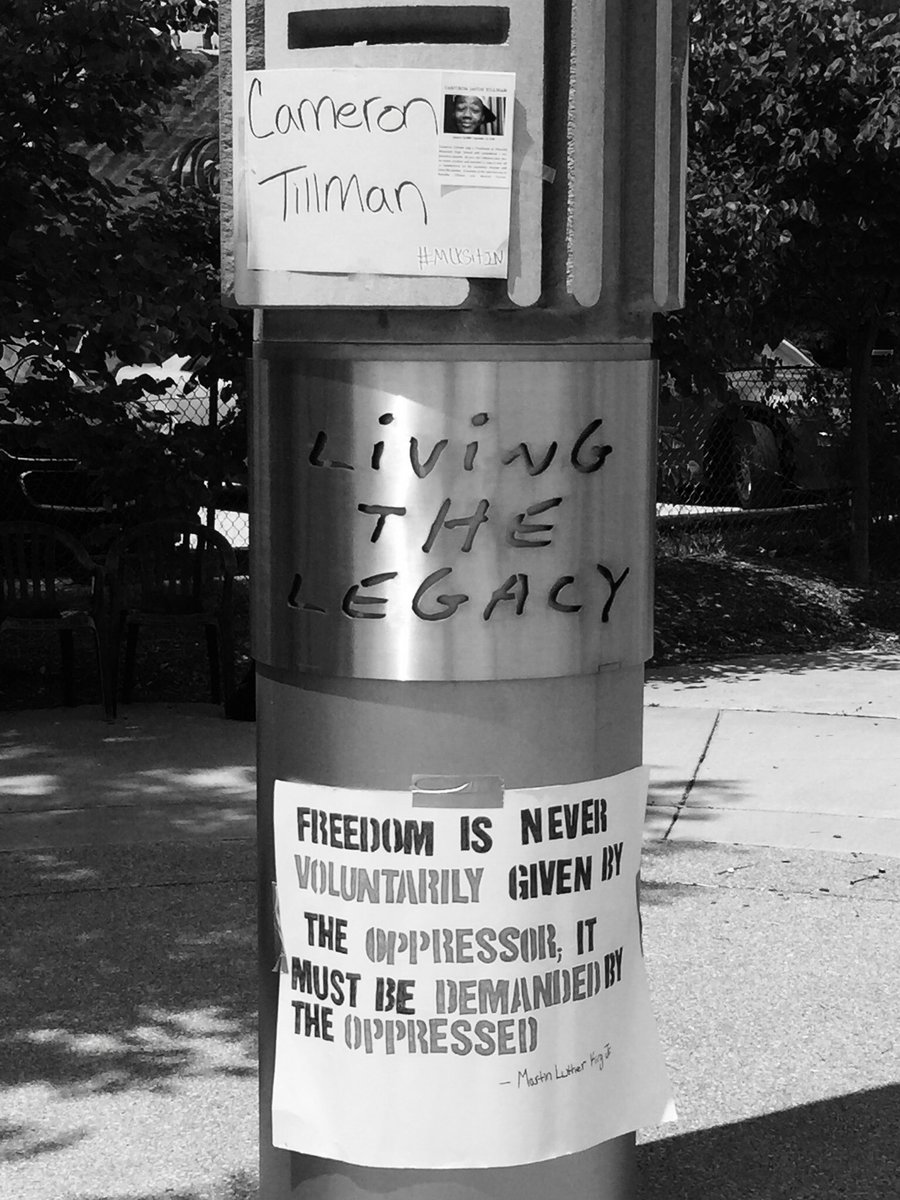 Cameron
Tillman
LiViNG
THE
LEGACY
FREEDOM IS NEVER
VOLUNTARILY GIVEN BY
THE OPPRESSOR; IT
MUST BE DEMANDED BY
THE OPPRESSED
— Martin Luther King Jr